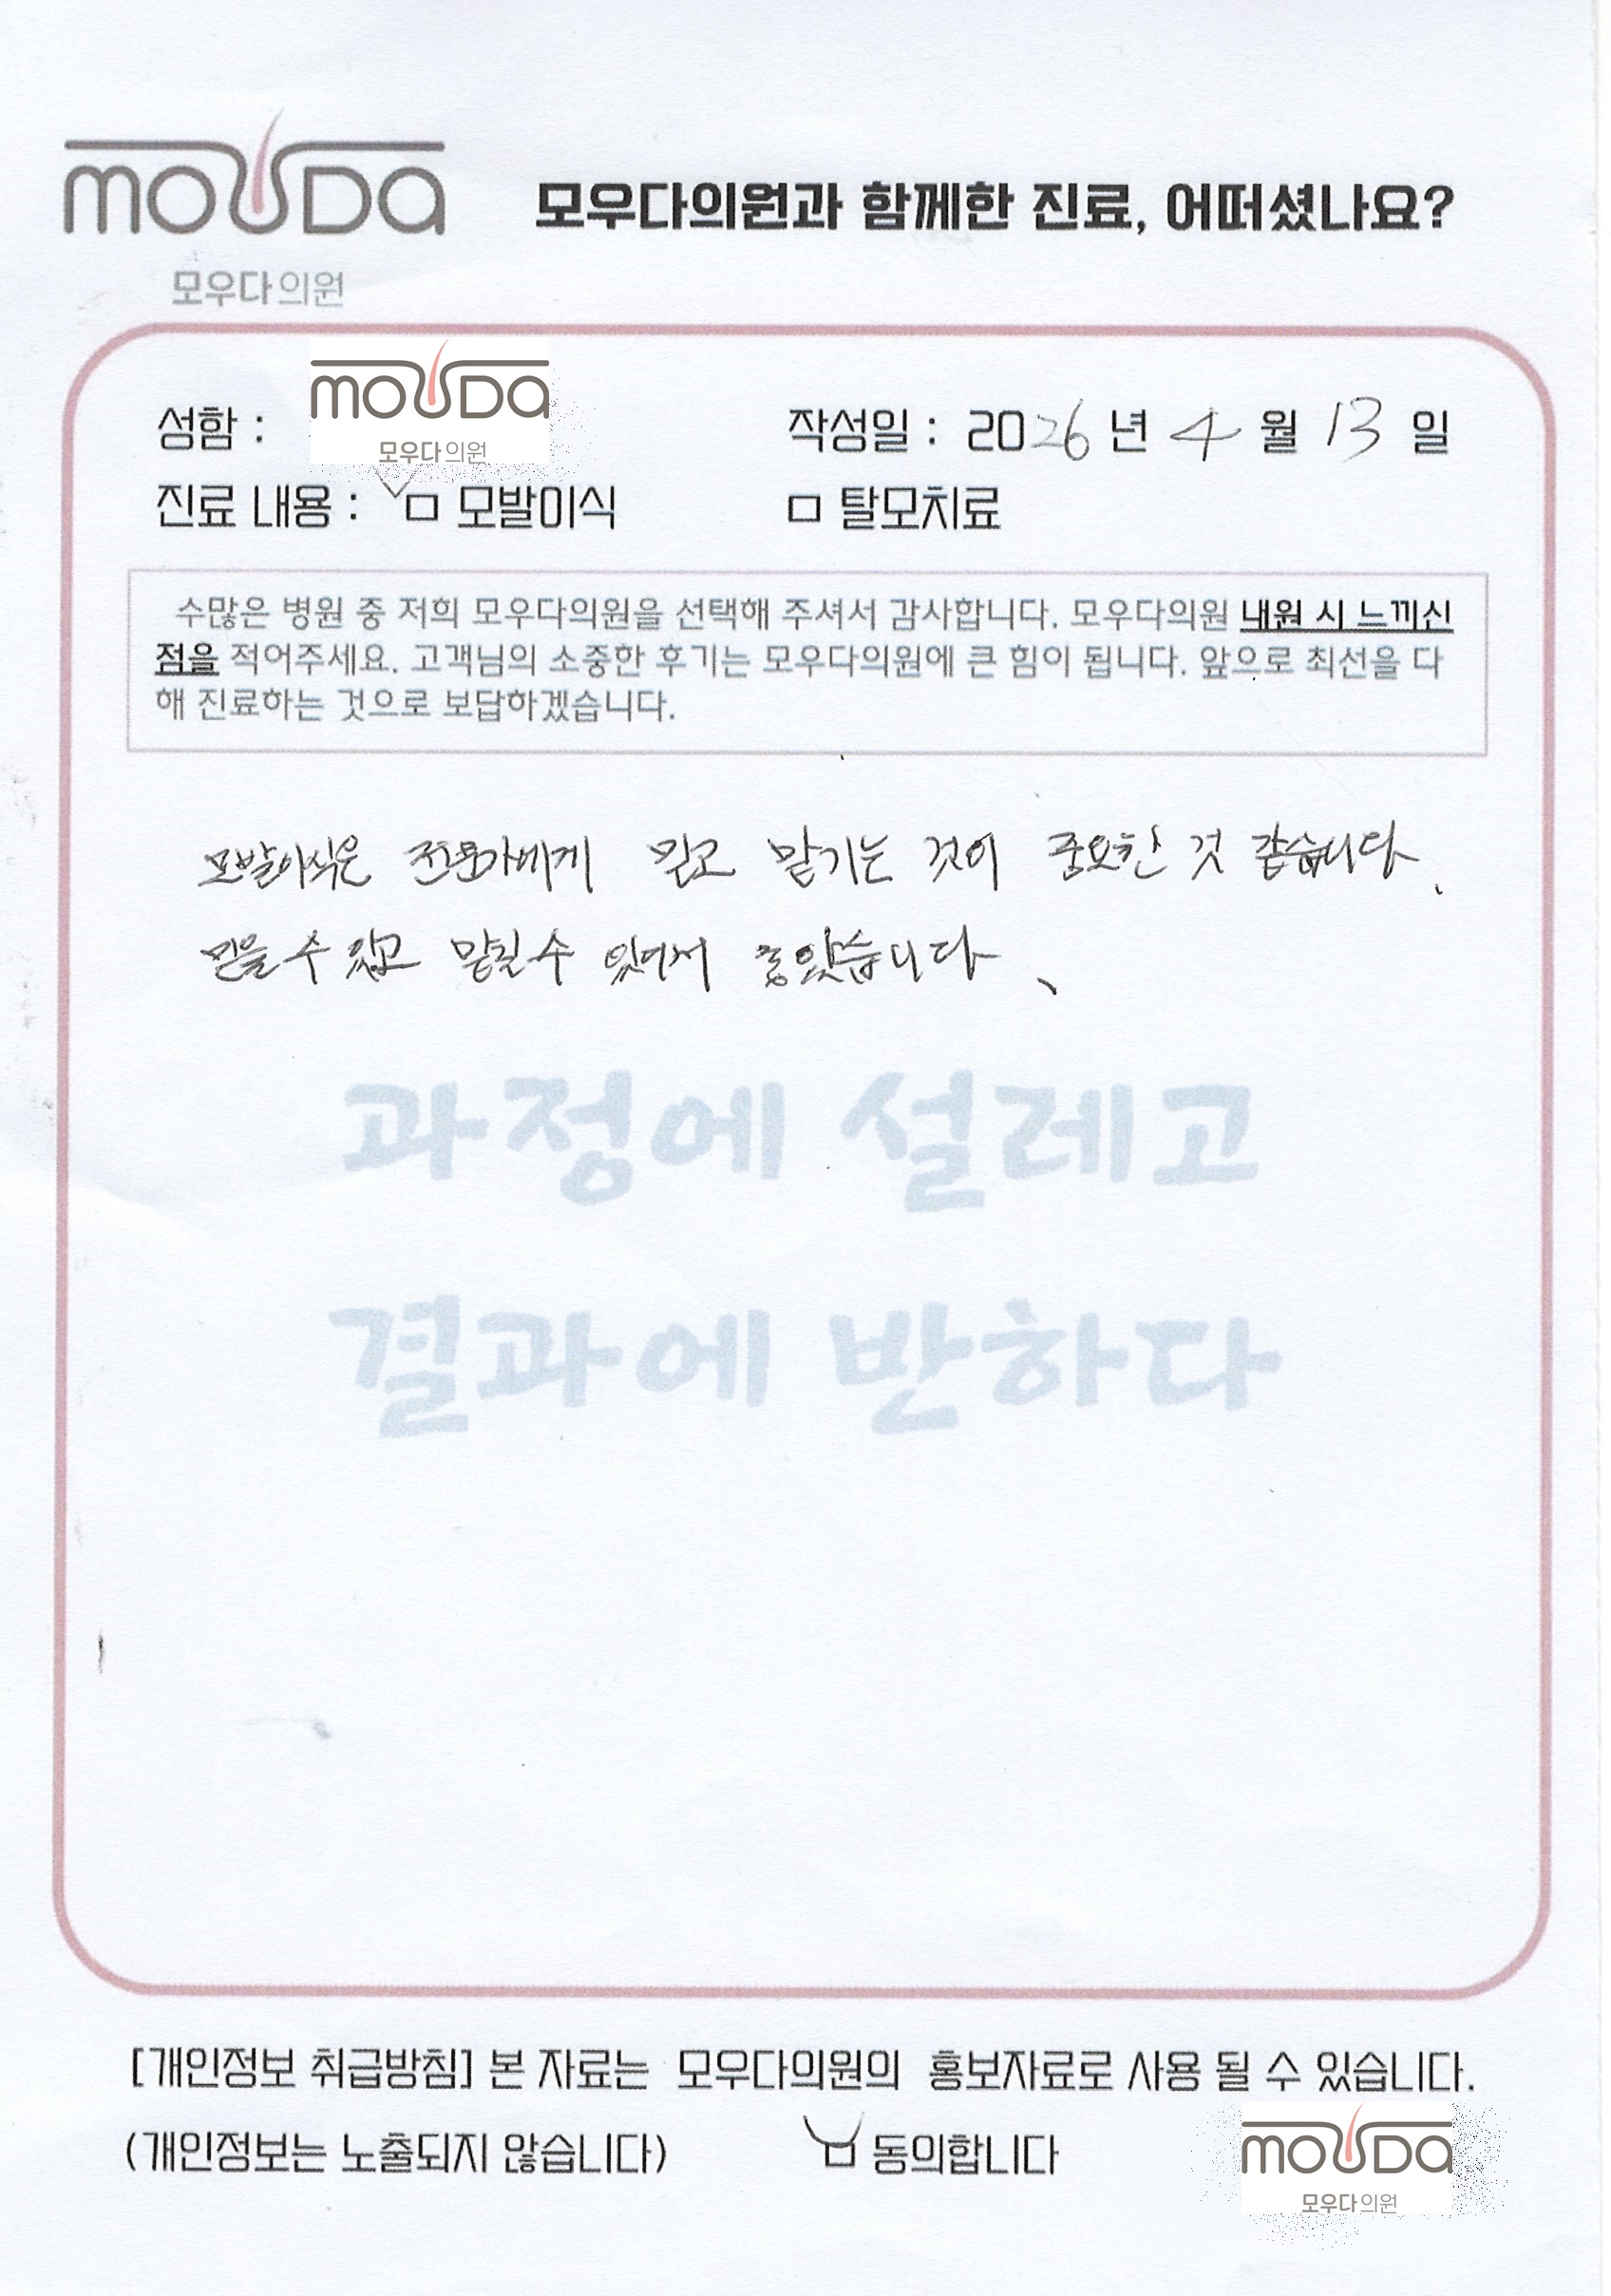 mouDa
모우다의원
모우다의원과 함께한 진료, 어떠셨나요?
성함 :
mouDa
모우다의원
작성일 : 2026 년 4 월 13 일
진료 내용 : □ 모발이식 □ 탈모치료
수많은 병원 중 저희 모우다의원을 선택해 주셔서 감사합니다. 모우다의원 내원 시 느끼신
점을 적어주세요. 고객님의 소중한 후기는 모우다의원에 큰 힘이 됩니다. 앞으로 최선을 다
해 진료하는 것으로 보답하겠습니다.
모발이식은 전문가에게 믿고 맡기는 것이 중요한 것 같습니다.
믿을 수 있고 맡길 수 있어서 좋았습니다.
과정에 설레고
결과에 반하다
[개인정보 취급방침] 본 자료는 모우다의원의 홍보자료로 사용 될 수 있습니다.
(개인정보는 노출되지 않습니다) □ 동의합니다
mouDa
모우다의원